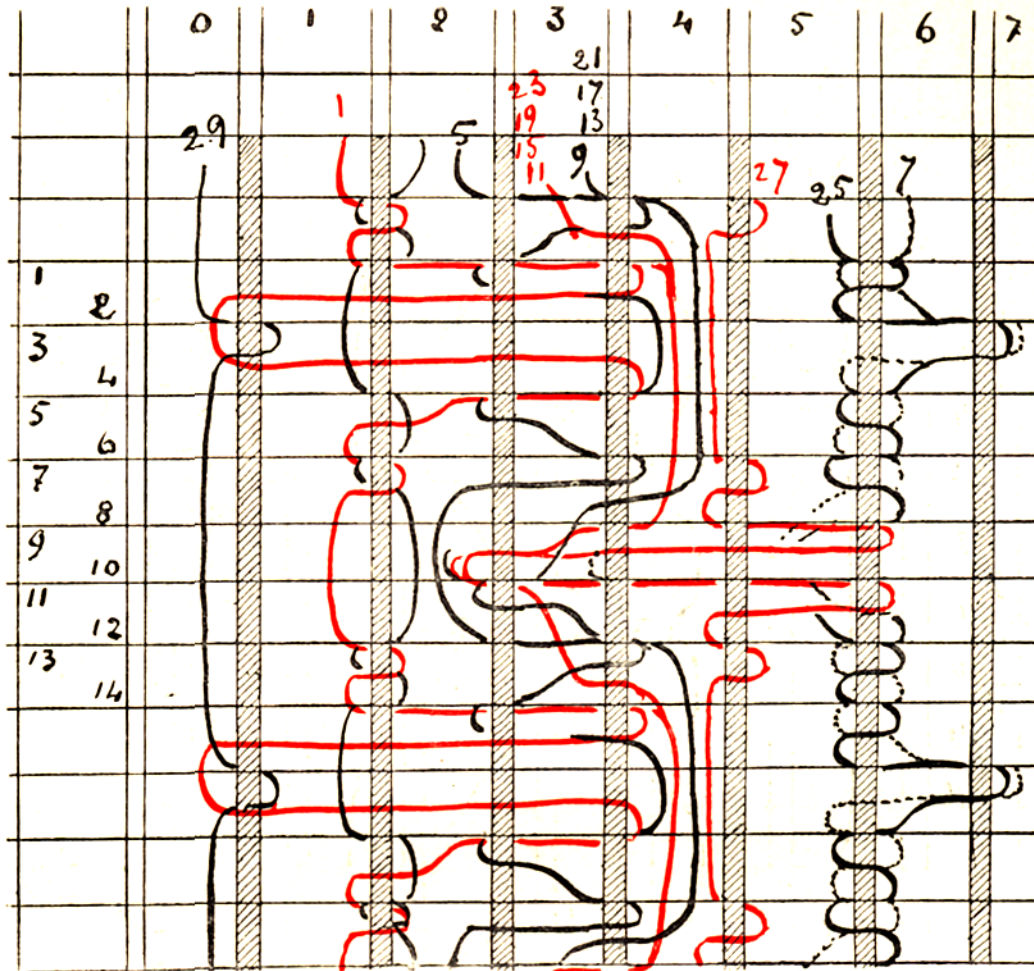 0 1 2 3 4 5 6 7
21
23 17
1 19 13
29 5 15 9
11 27 25 7
1
2
3
4
5
6
7
8
9
10
11
12
13
14